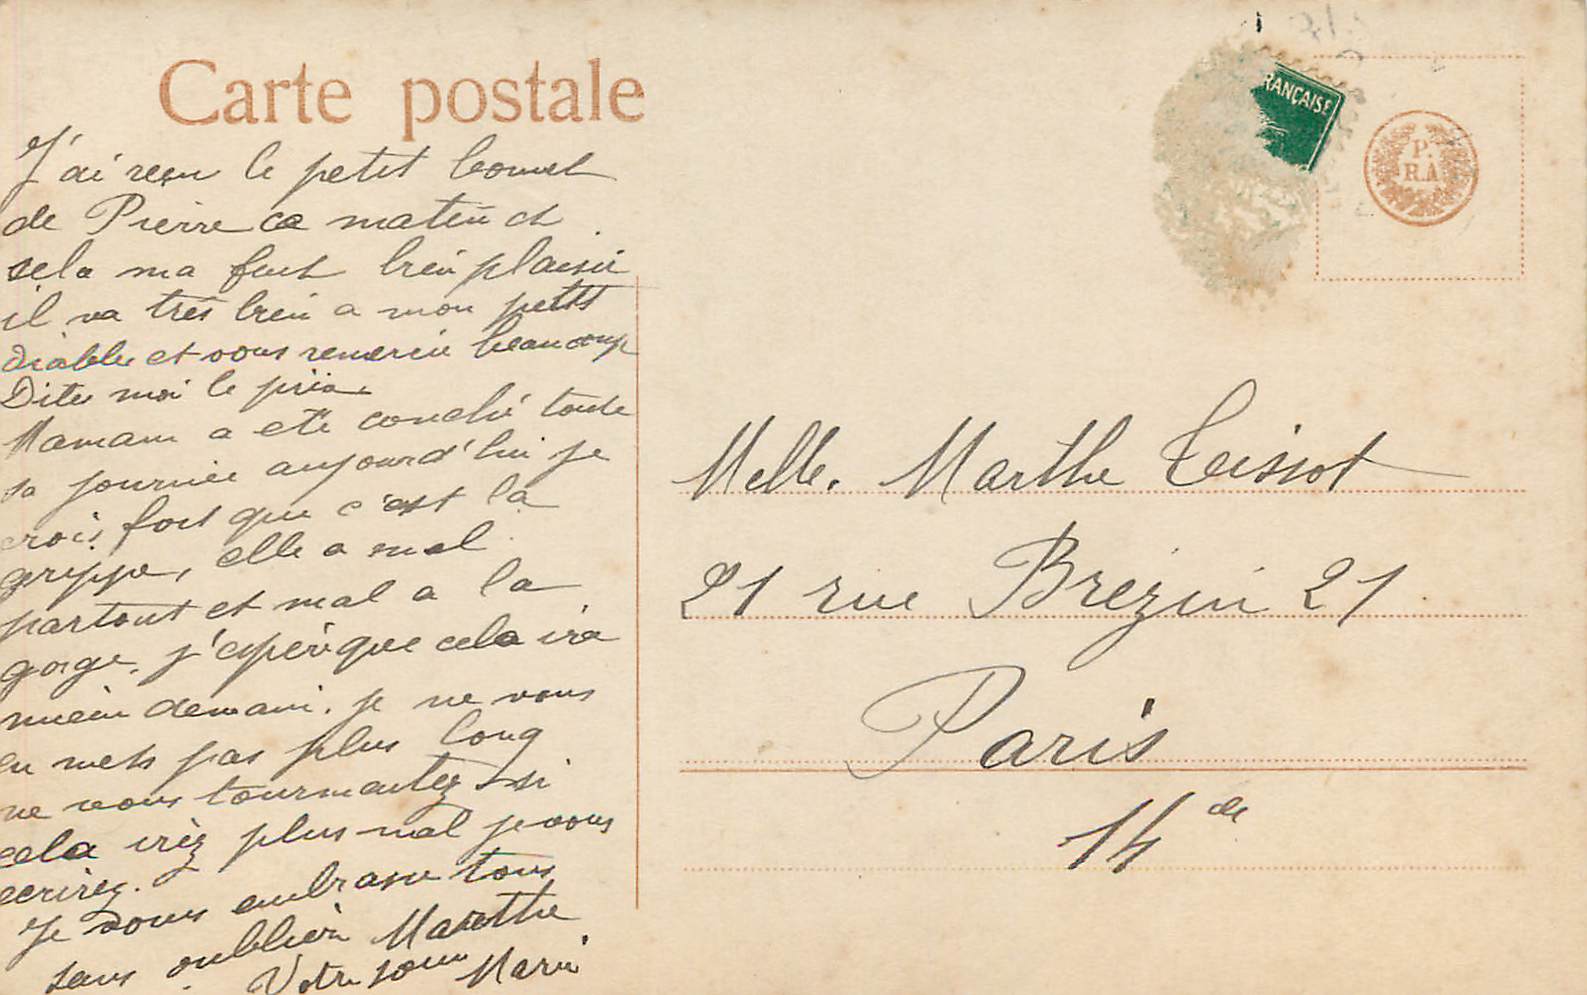 Carte postale
RANÇAISE
P.
R.A
J'ai reçu le petit bonnet
de Pierre ce matin et
cela ma fait bien plaisir
il va très bien a mon petit
diable et vous remercie beaucoup
Dites moi le prix
Maman a eté couché toute
sa journée aujourd'hui je
crois fort que c'est la
grippe, elle a mal
partout et mal a la
gorge, j'espère que cela ira
mieux demain. je ne vous
en mets pas plus long
ne vous tourmentez si
cela irez plus mal je vous
ecrirez.
Je vous embrasse tous
sans oublier Marthe
Votre soeur Marie
Melle. Marthe Teissot
21 rue Brezin 21
Paris
14 de